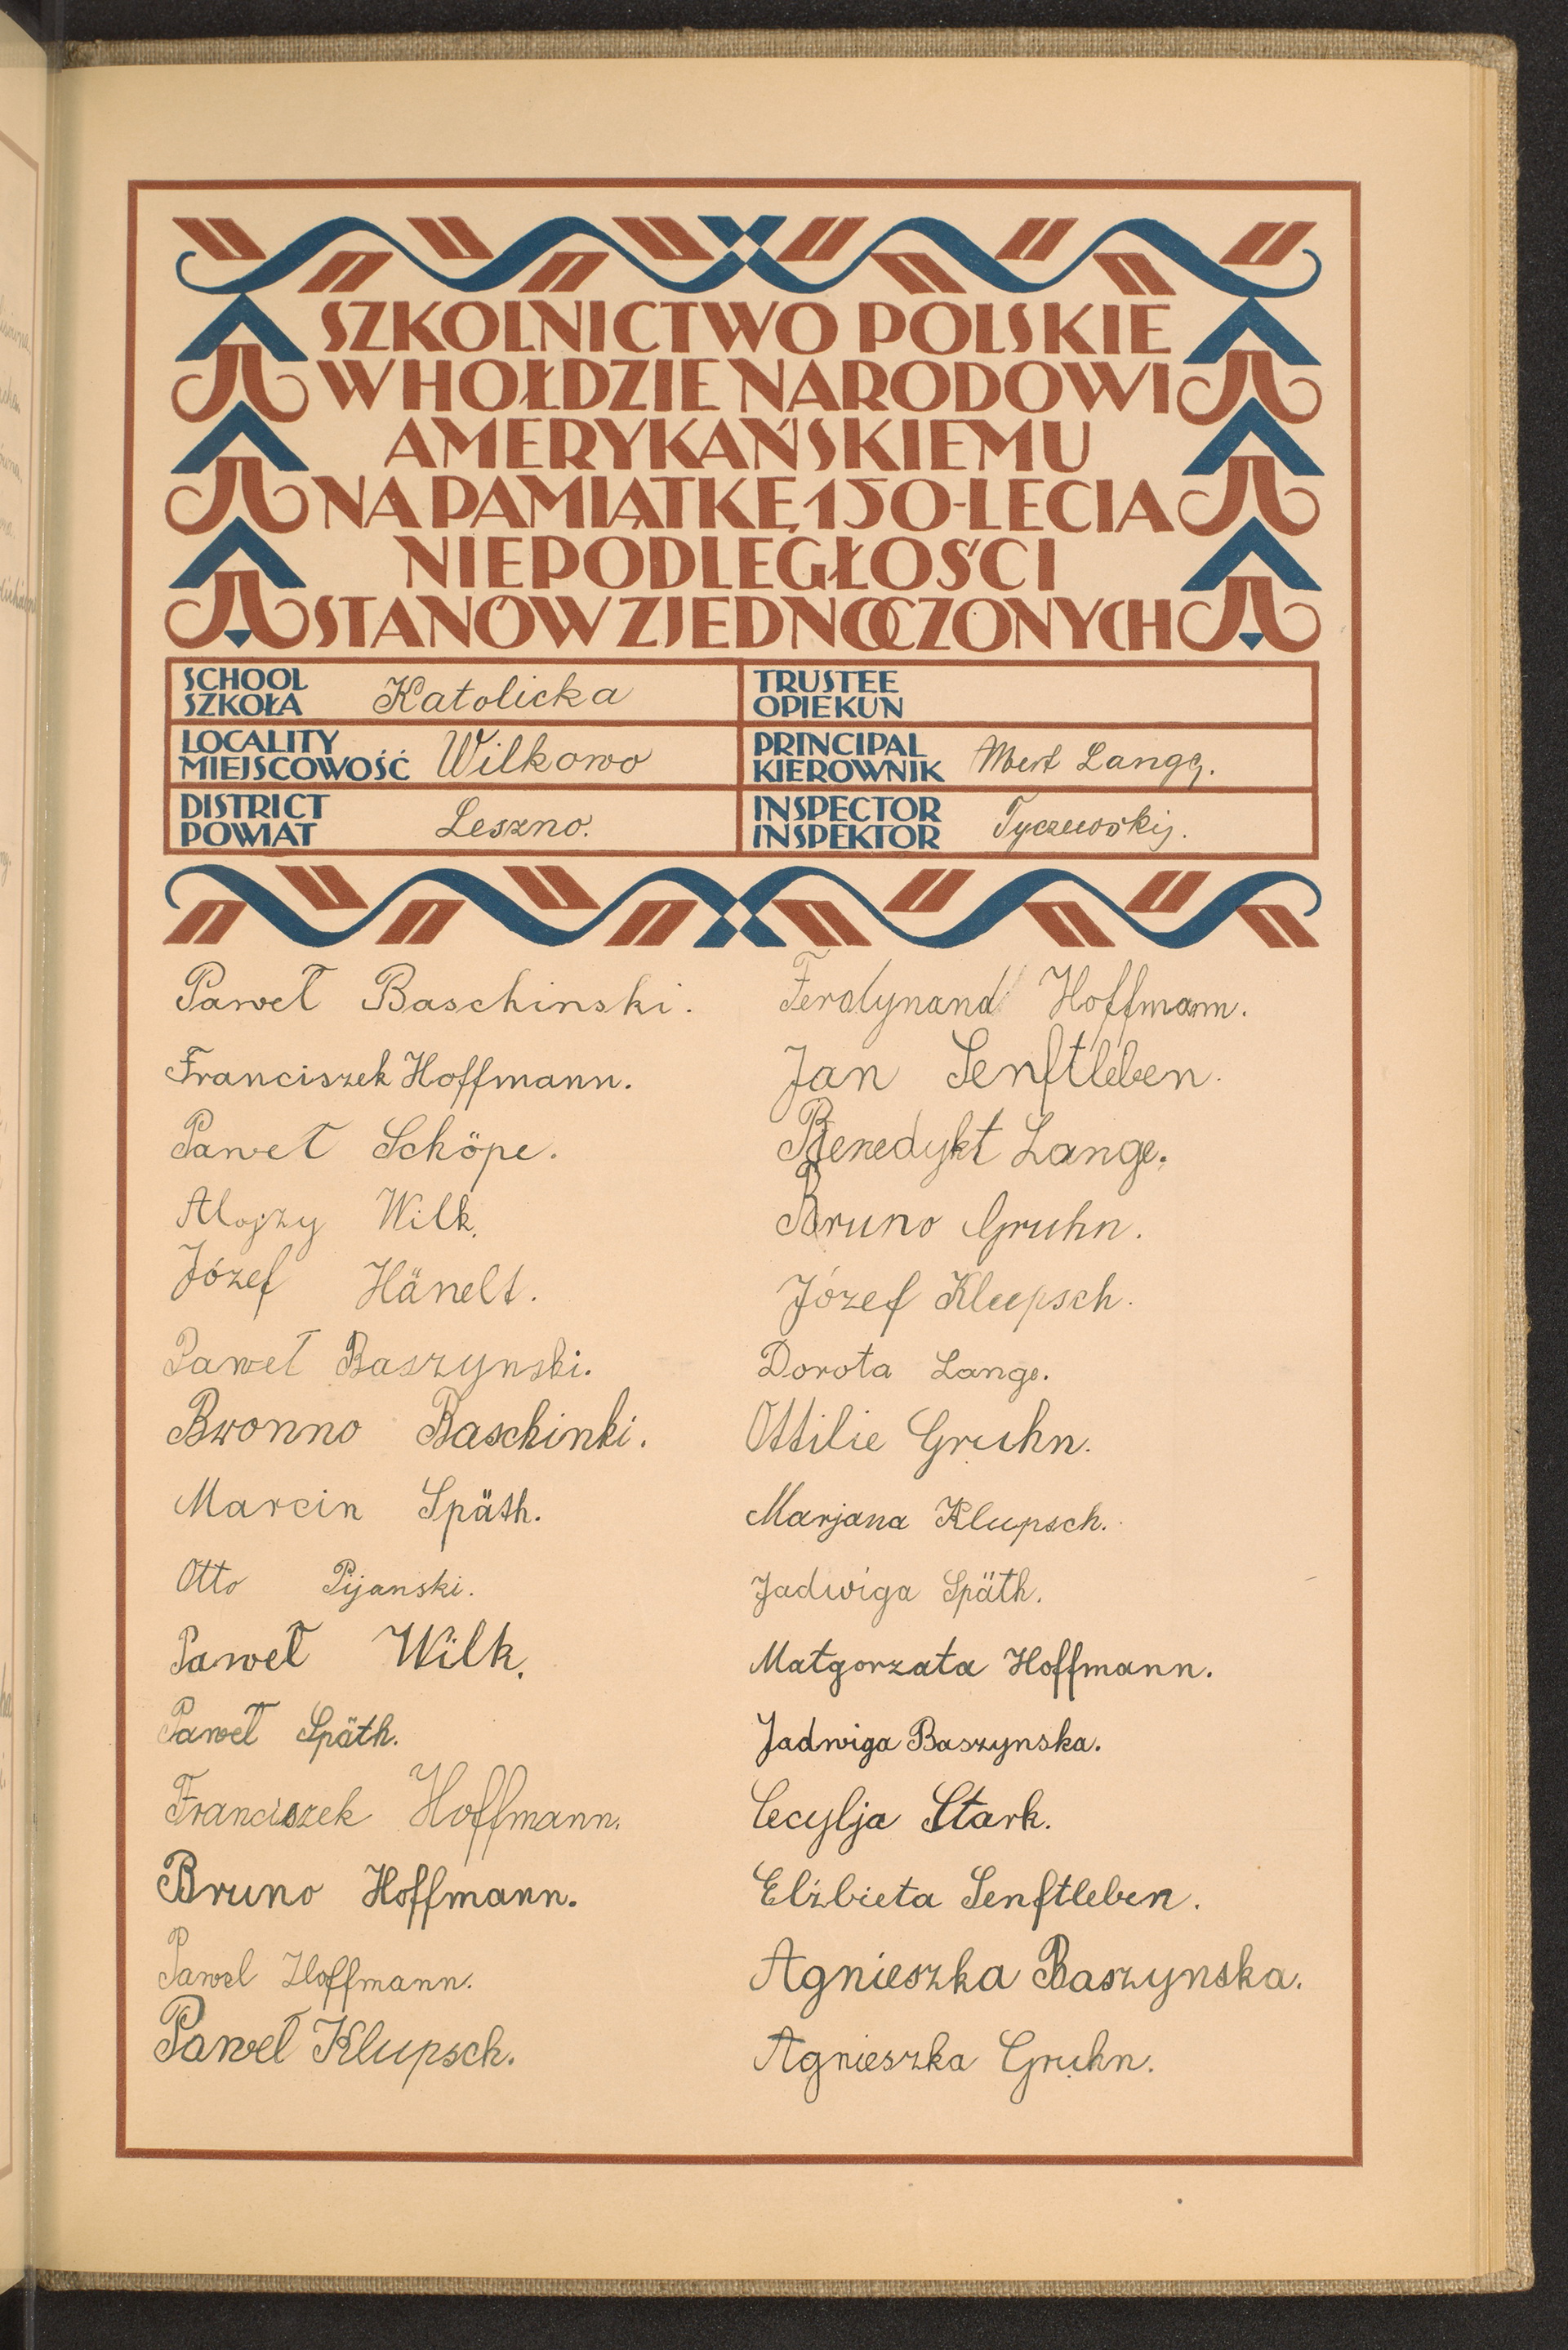 SZKOLNICTWO POLSKIE
W HOŁDZIE NARODOWI
AMERYKAŃSKIEMU
NA PAMIĄTKĘ 150-LECIA
NIEPODLEGŁOŚCI
STANÓW ZJEDNOCZONYCH
SCHOOL
SZKOŁA
Katolicka
TRUSTEE
OPIEKUN
LOCALITY
MIEJSCOWOŚĆ
Wilkowo
PRINCIPAL
KIEROWNIK
Lange.
DISTRICT
POWIAT
Leszno.
INSPECTOR
INSPEKTOR
Tyczewski.
Paweł Baschinski.
Franciszek Hoffmann.
Paweł Schöpe.
Alojzy Wilk.
Józef Hänelt.
Paweł Baszynski.
Bronno Baschinki.
Marcin Späth.
Otto Pijanski.
Paweł Wilk.
Paweł Späth.
Franciszek Hoffmann.
Bruno Hoffmann.
Pawel Hoffmann.
Paweł Klupsch.
Ferdynand Hoffmann.
Jan Senftleben.
Benedykt Lange.
Bruno Gruhn.
Józef Klupsch.
Dorota Lange.
Ottilie Gruhn.
Marjana Klupsch.
Jadwiga Späth.
Małgorzata Hoffmann.
Jadwiga Baszynska.
Cecylja Stark.
Elżbieta Senftleben.
Agnieszka Baszynska.
Agnieszka Gruhn.